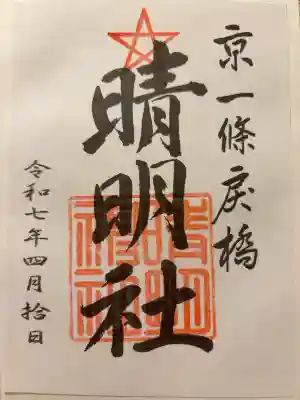 京一條戻橋
晴明社
令和七年四月拾日
晴明神社